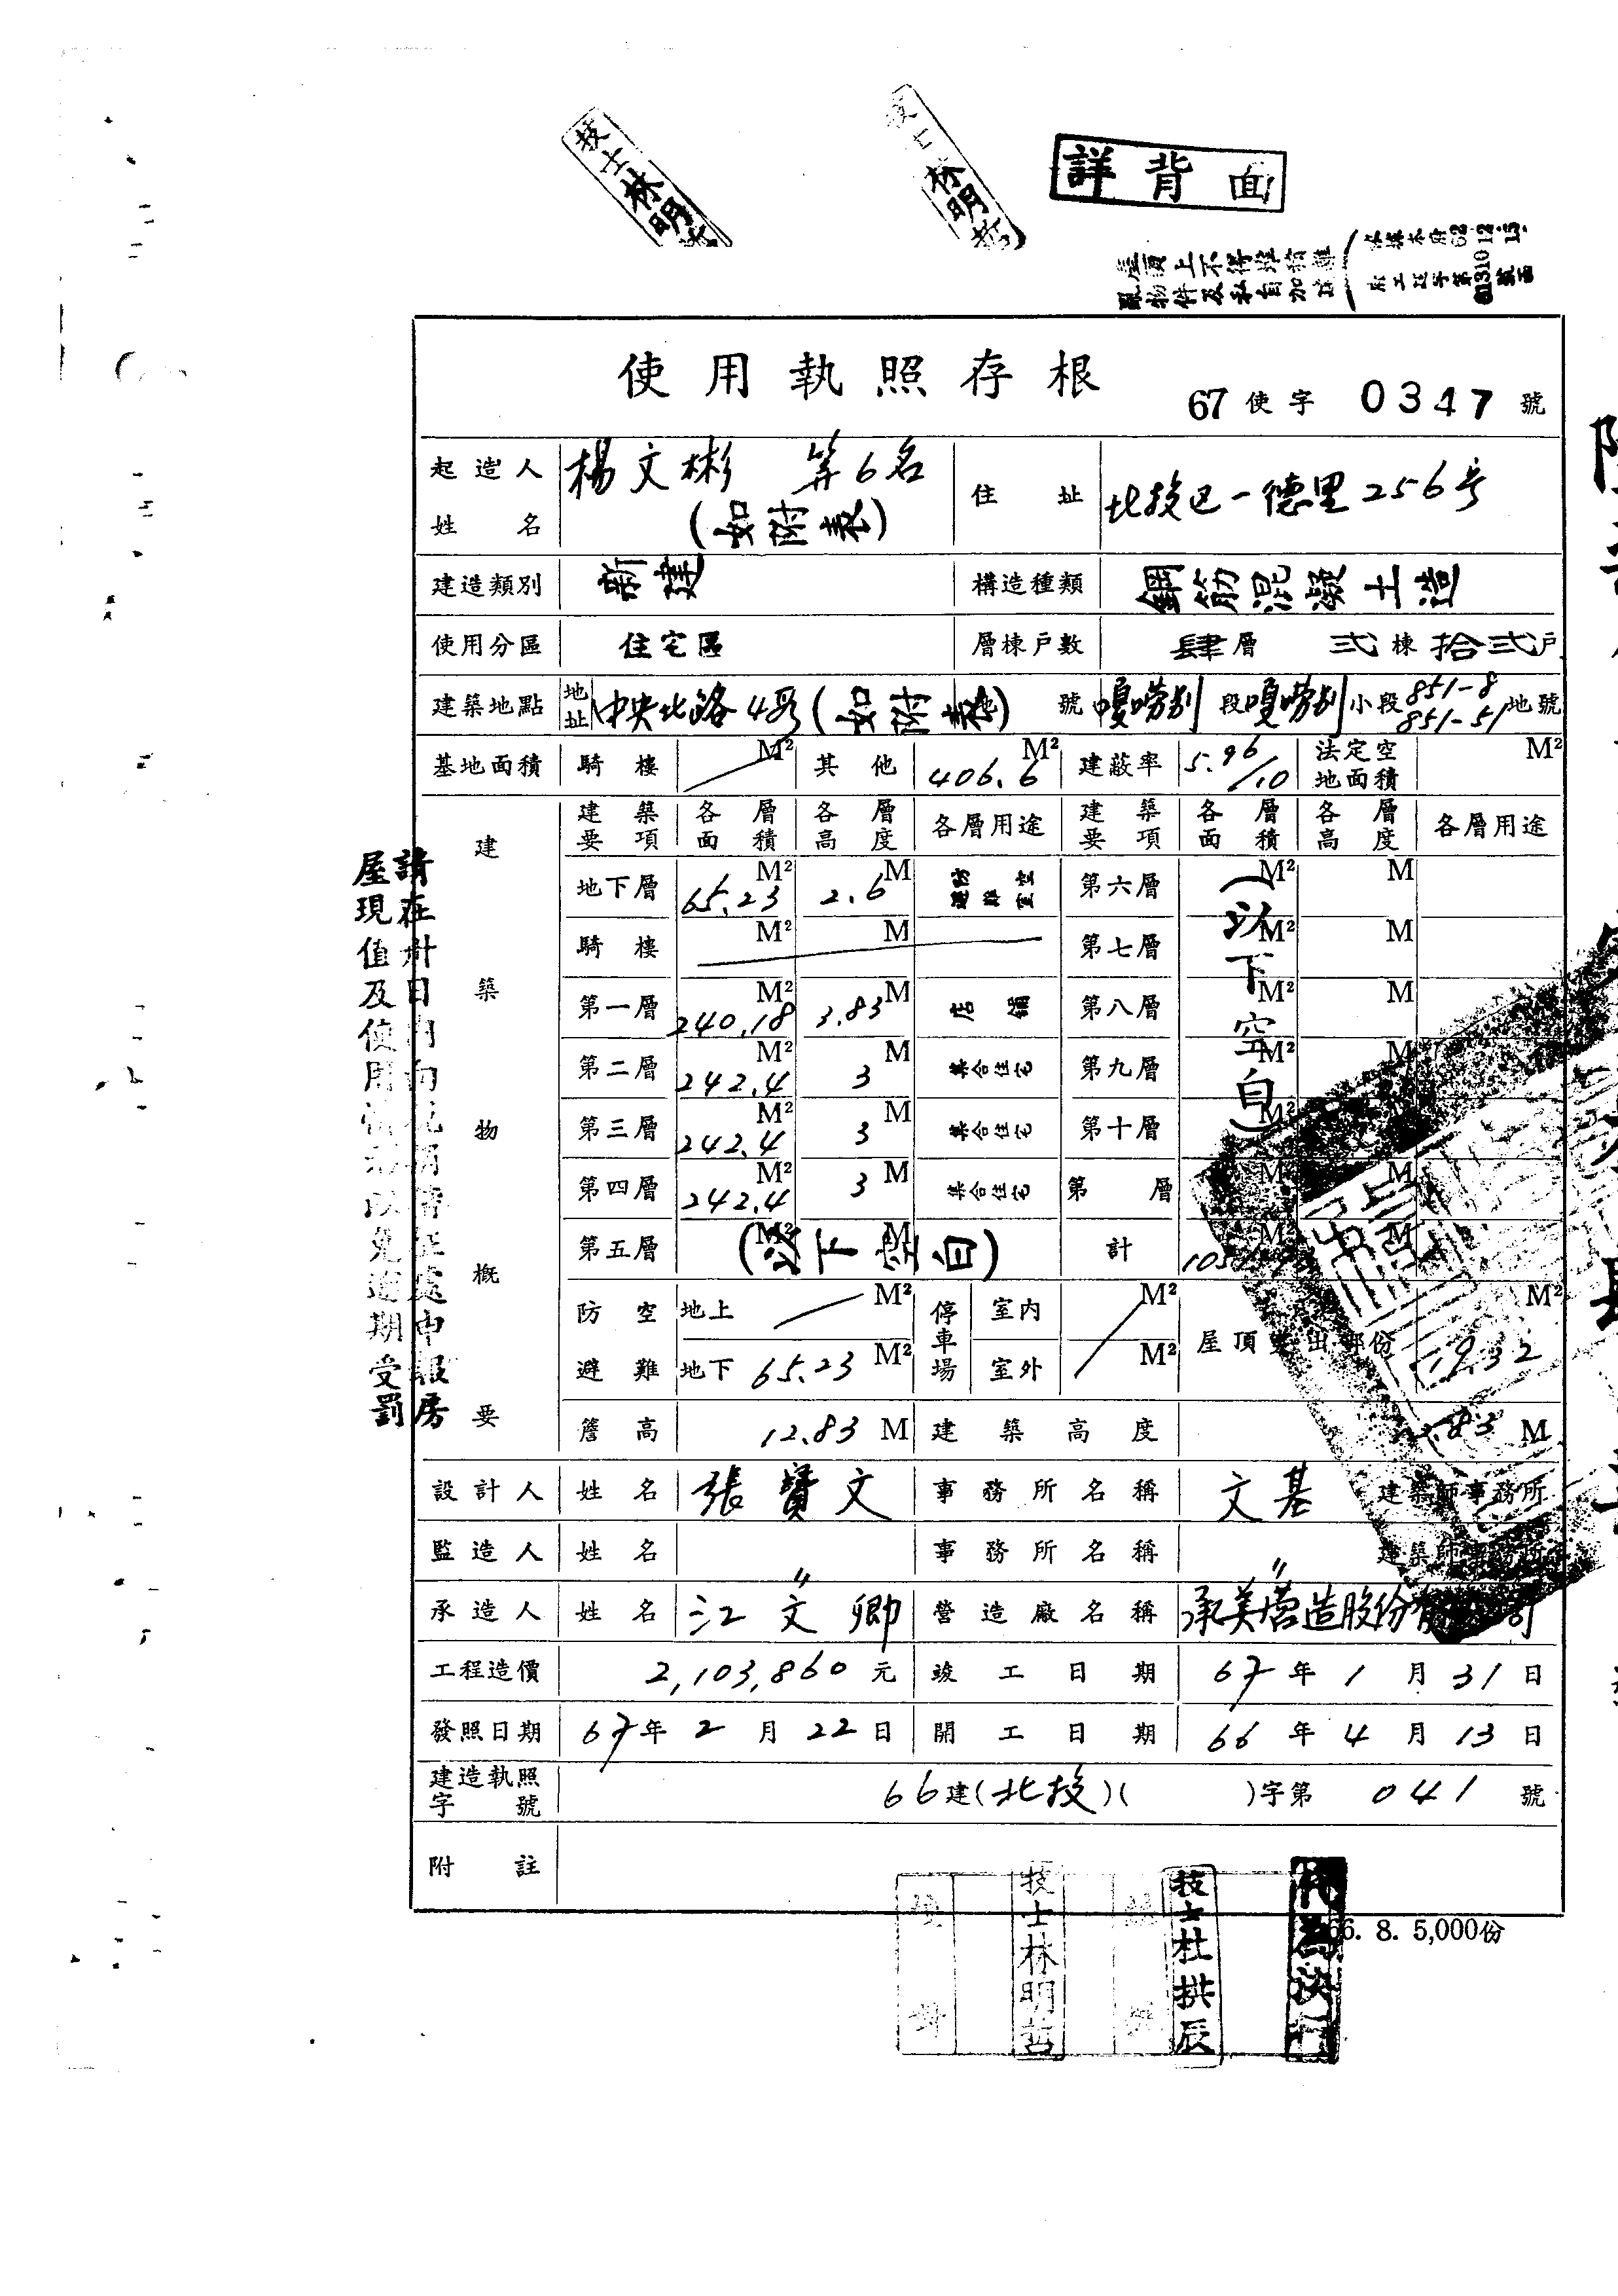 技士林明
技士林明哲
詳背面
使用執照存根
67使字 0347 號
起造人姓名 楊文彬 等6名 (如附表) 住址 北投区一德里256号
建造類別 新建 構造種類 鋼筋混凝土造
使用分區 住宅區 層棟戶數 肆層 弍棟 拾弍戶
建築地點 地址 中央北路4段(如附表) 號 嗄嘮別段嗄嘮別小段 851-8 851-51 地號
基地面積 騎樓 M² 其他 406.6 M² 建蔽率 5.96/10 法定空地面積 M²
建築物概要
建築要項 各層面積 各層高度 各層用途 建築要項 各層面積 各層高度 各層用途
地下層 65.23 M² 2.6 M 防空避難室 第六層 M² M
騎樓 M² M 第七層 M² M
第一層 240.18 M² 3.83 M 店舖 第八層 M² M
第二層 242.4 M² 3 M 集合住宅 第九層 M² M
第三層 242.4 M² 3 M 集合住宅 第十層 M²
第四層 242.4 M² 3 M 集合住宅 第 層 M M
第五層 M² M (以下空白) 計
(以下空白)
防空避難 地上 M² 停車場 室內 M² 屋頂突出部份 19.32 M²
地下 65.23 M² 室外 M²
簷高 12.83 M 建築高度 M
設計人 姓名 張賢文 事務所名稱 文基 建築師事務所
監造人 姓名 〃 事務所名稱 〃 建築師事務所
承造人 姓名 江文卿 營造廠名稱 承美營造股份有
工程造價 2,103,860 元 竣工日期 67年1月31日
發照日期 67年2月22日 開工日期 66年4月13日
建造執照字號 66建(北投)( )字第 041 號
附註
66. 8. 5,000份
技士林明哲
技士杜拱辰
代為決行